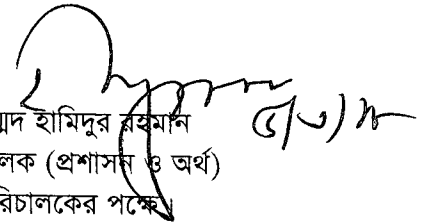 ম্মদ হামিদুর রহমান
লক (প্রশাসন ও অর্থ)
রিচালকের পক্ষে।